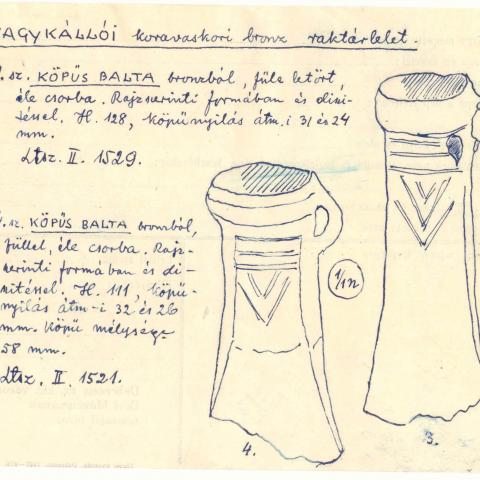 NAGYKÁLLÓI koravaskori bronz raktárlelet.
sz. KÖPŰS BALTA bronzból, füle letört,
éle csorba. Rajzszerinti formában és díszí-
téssel. H. 128, köpűnyilás átm.i 31 és 24
mm.
Ltsz. II. 1529.
sz. KÖPŰS BALTA bronzból,
füllel, éle csorba. Rajz-
szerinti formában és dí-
szítéssel. H. 111, köpű-
nyilás átm-i 32 és 26
mm. Köpű mélysége
58 mm.
Ltsz. II. 1521.
1/1 n
4.
3.